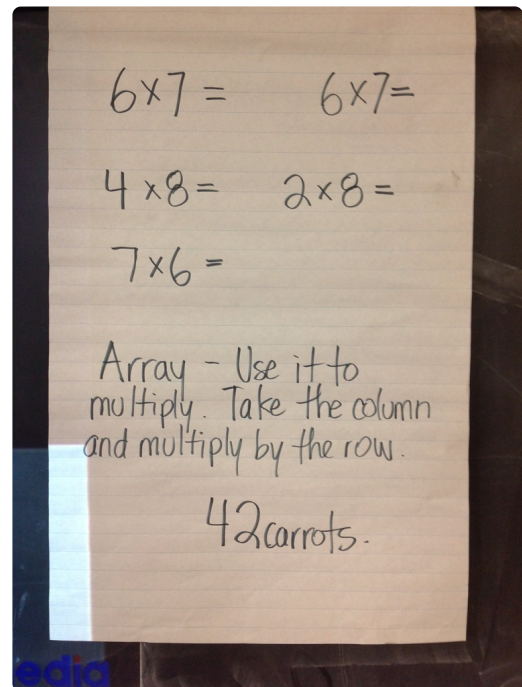 6×7=  6×7=
4×8=  2×8=
7×6=
Array - Use it to
multiply. Take the column
and multiply by the row.
42 carrots.
edia